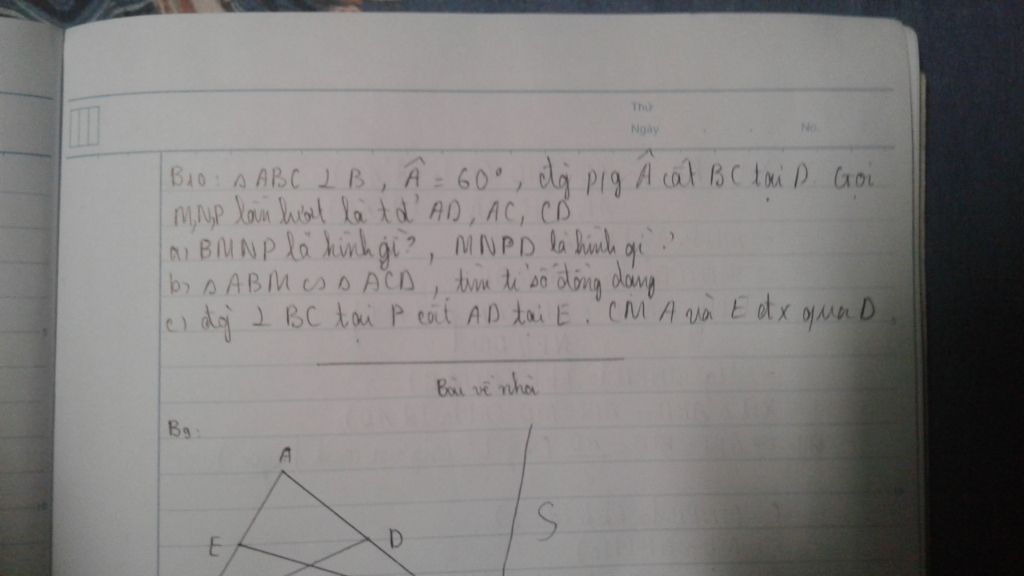 Thứ
Ngày . . No.
B10: △ ABC ⊥ B, Â = 60°, đg p/g Â cắt BC tại D Gọi
M,N,P lần lượt là tđ' AD, AC, CD
a, BMNP là hình gì?, MNPD là hình gì?
b, △ ABM ∽ △ ACD, tìm tỉ số đồng dạng
c, đg ⊥ BC tại P cắt AD tại E. CM A và E đx qua D.
Bài về nhà
B9:
A
E
D
S